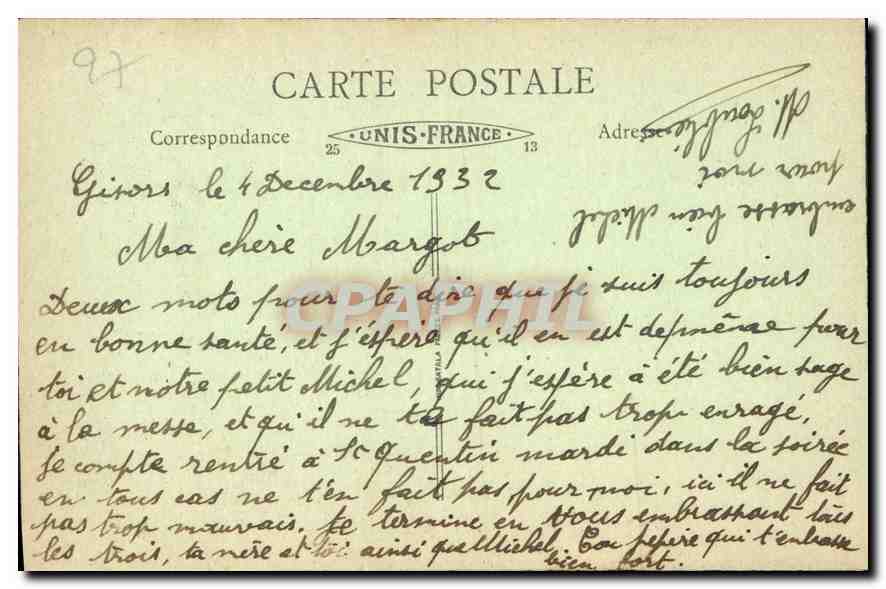 97
CARTE POSTALE
Correspondance
UNIS-FRANCE
25
13
Adresse
Gisors le 4 Decenbre 1932
Ma chère Margot
Deuex mots pour te dire que je suis toujours
en bonne santé, et j'éspère qu'il en est de mème pour
toi et notre petit Michel, qui j'espére à été bien sage
à la messe, et qu'il ne te fait pas trop enragé,
Je compte rentré à St Quentin mardi dans la soirée
en tous cas ne t'en fait pas pour moi, ici il ne fait
pas trop mauvais. Je termine en vous embrassant tous
les trois, ta mère et toi ainsi que Michel. Ton pepere qui t'enbrasse
bien fort.
embrasse bien Michel
pour moi
CPAPHIL